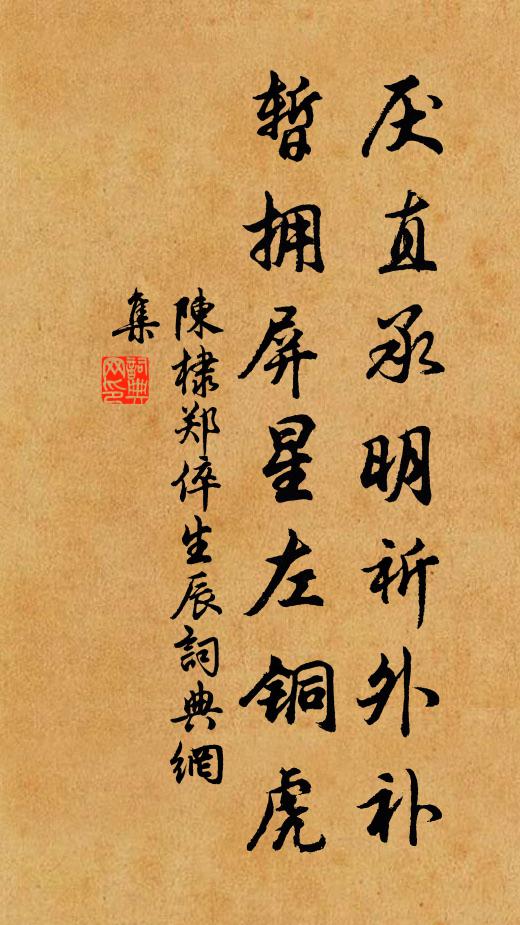 厌直承明祈外补
暂拥屏星左铜虎
陳棣郑倅生辰詞典網
集
詞典
网印